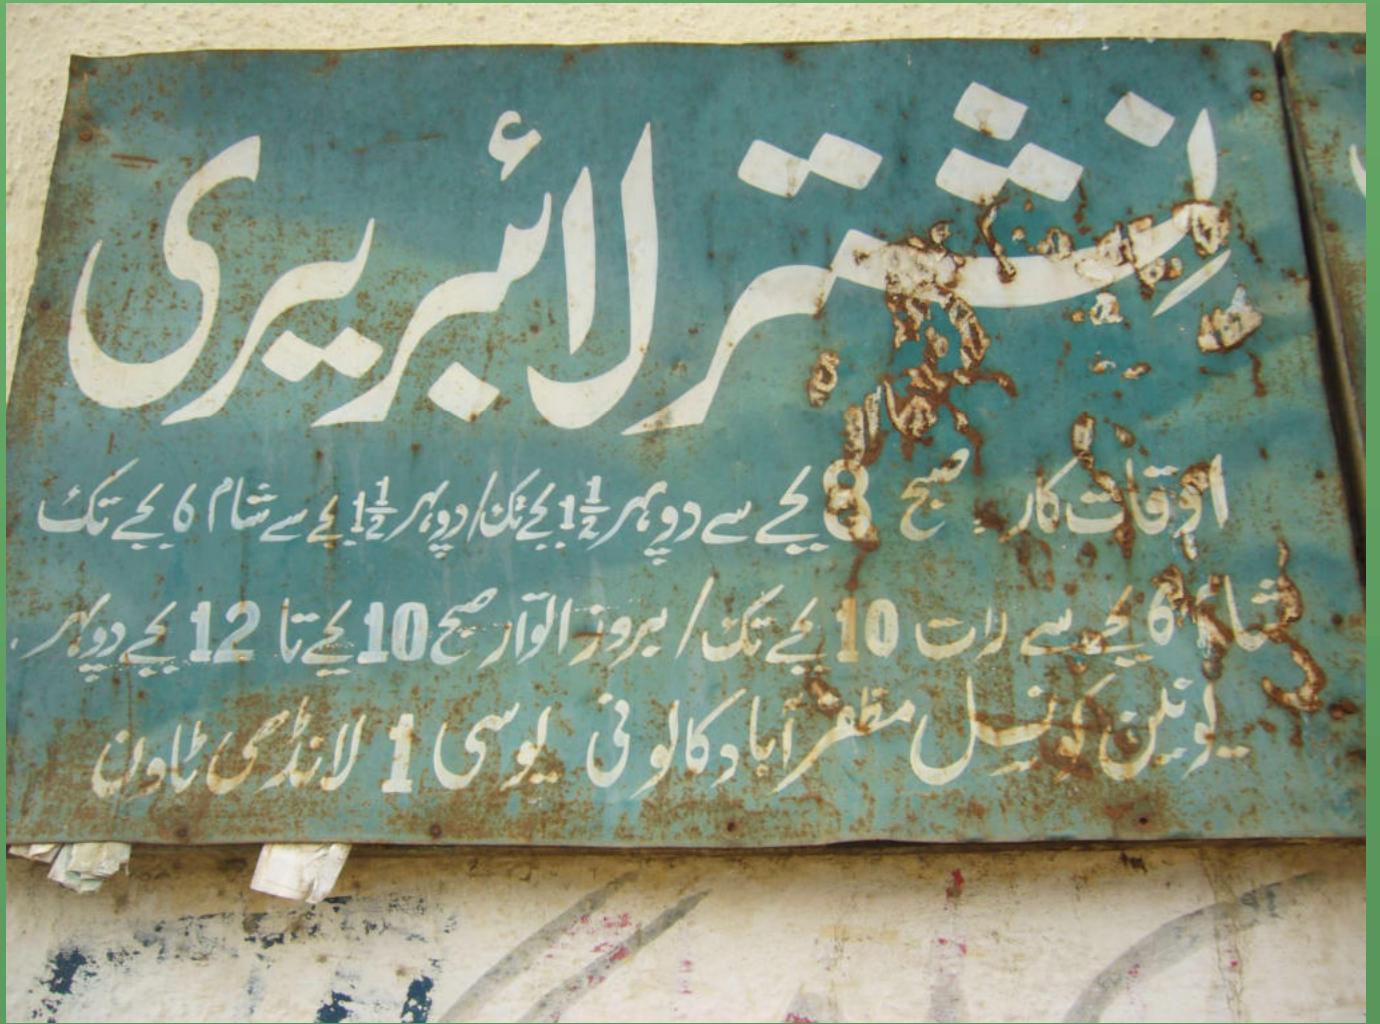 نِشتر لائبریری
اوقات کار: صبح 8 بجے سے دوپہر 1½ بجے تک / دوپہر 1½ بجے سے شام ۶ بجے تک
شام 6 بجے سے رات 10 بجے تک / بروز اتوار صبح 10 بجے تا 12 بجے دوپہر.
یونین کونسل مظفر آباد کالونی یوسی 1 لانڈھی ٹاون